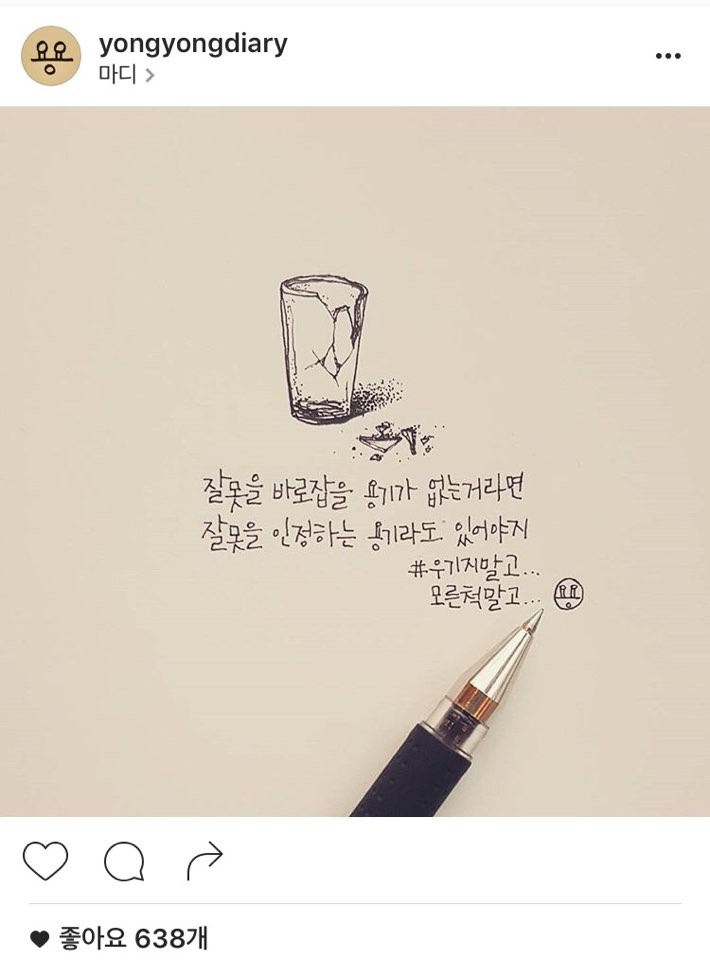 yongyongdiary
마디 >
잘못을 바로잡을 용기가 없는거라면
잘못을 인정하는 용기라도 있어야지
#우기지말고...
모른척말고...
좋아요 638개